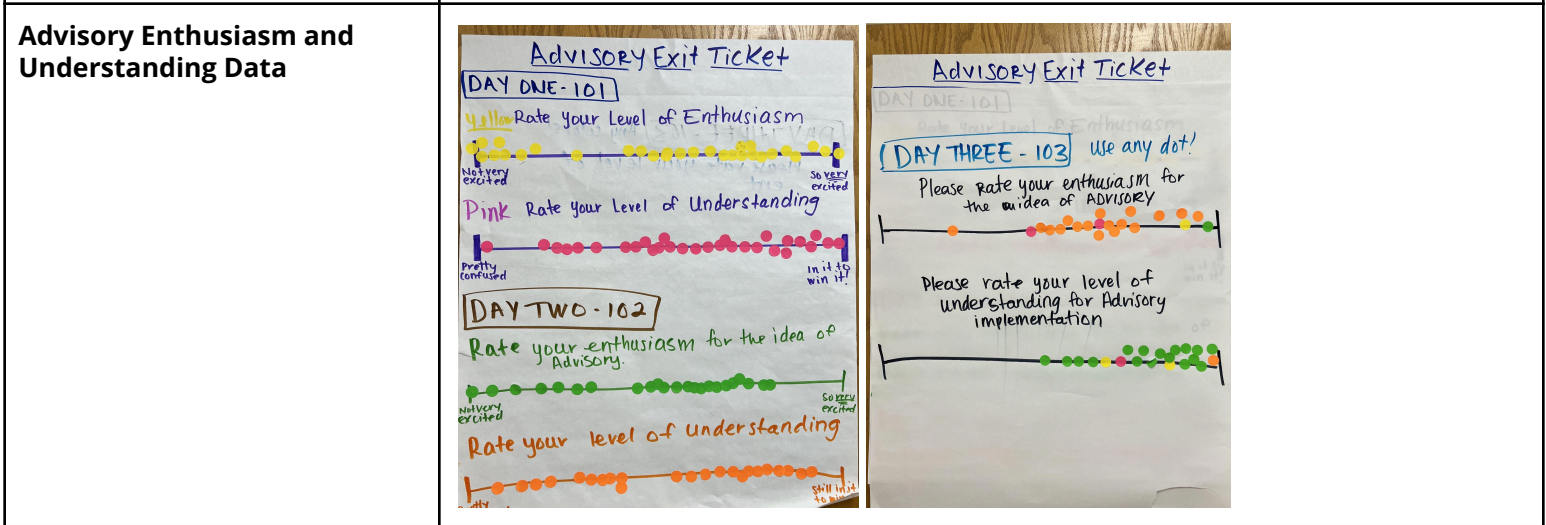 Advisory Enthusiasm and
Understanding Data
Advisory Exit Ticket
DAY ONE - 101
Yellow Rate your Level of Enthusiasm
Not very
excited
So very
excited
Pink Rate your Level of Understanding
Pretty
confused
In it to
win it!
DAY TWO - 102
Rate your enthusiasm for the idea of
Advisory.
Not very
excited
So very
excited
Rate your level of understanding
Still in it
to
Advisory Exit Ticket
DAY ONE - 101
Rate your Level of Enthusiasm
DAY THREE - 103 use any dot!
Please Rate your enthusiasm for
the idea of ADVISORY
Please rate your level of
understanding for Advisory
implementation